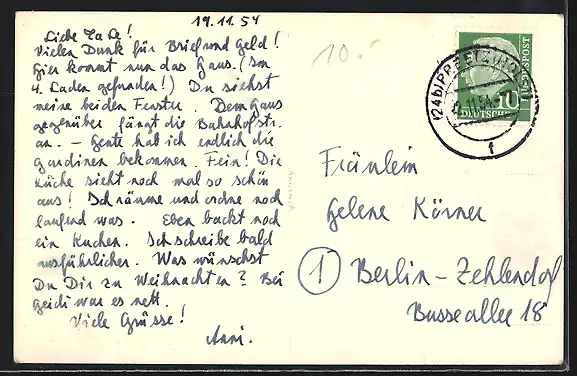 19.11.54
Liebe La Le!
Vielen Dank für Brief und Geld!
Hier kommt nun das Haus. (Im
4. Laden gefunden!) Du siehst
meine beiden Fenster. Dem Haus
gegenüber fängt die Bahnhofstr.
an. – Heute hab ich endlich die
Gardinen bekommen. Fein! Die
Küche sieht noch mal so schön
aus! Ich räume und ordne noch
laufend was. Eben backt noch
ein Kuchen. Ich schreibe bald
ausführlicher. Was wünschst
Du Dir zu Weihnachten? Bei
Heidi war es nett.
Viele Grüsse!
Anni.
10.-
(24b) PREETZ
.11.54
f
10
DEUTSCHE
BUNDESPOST
Fräulein
Helene Körner
1 Berlin-Zehlendorf
Bussealler 18